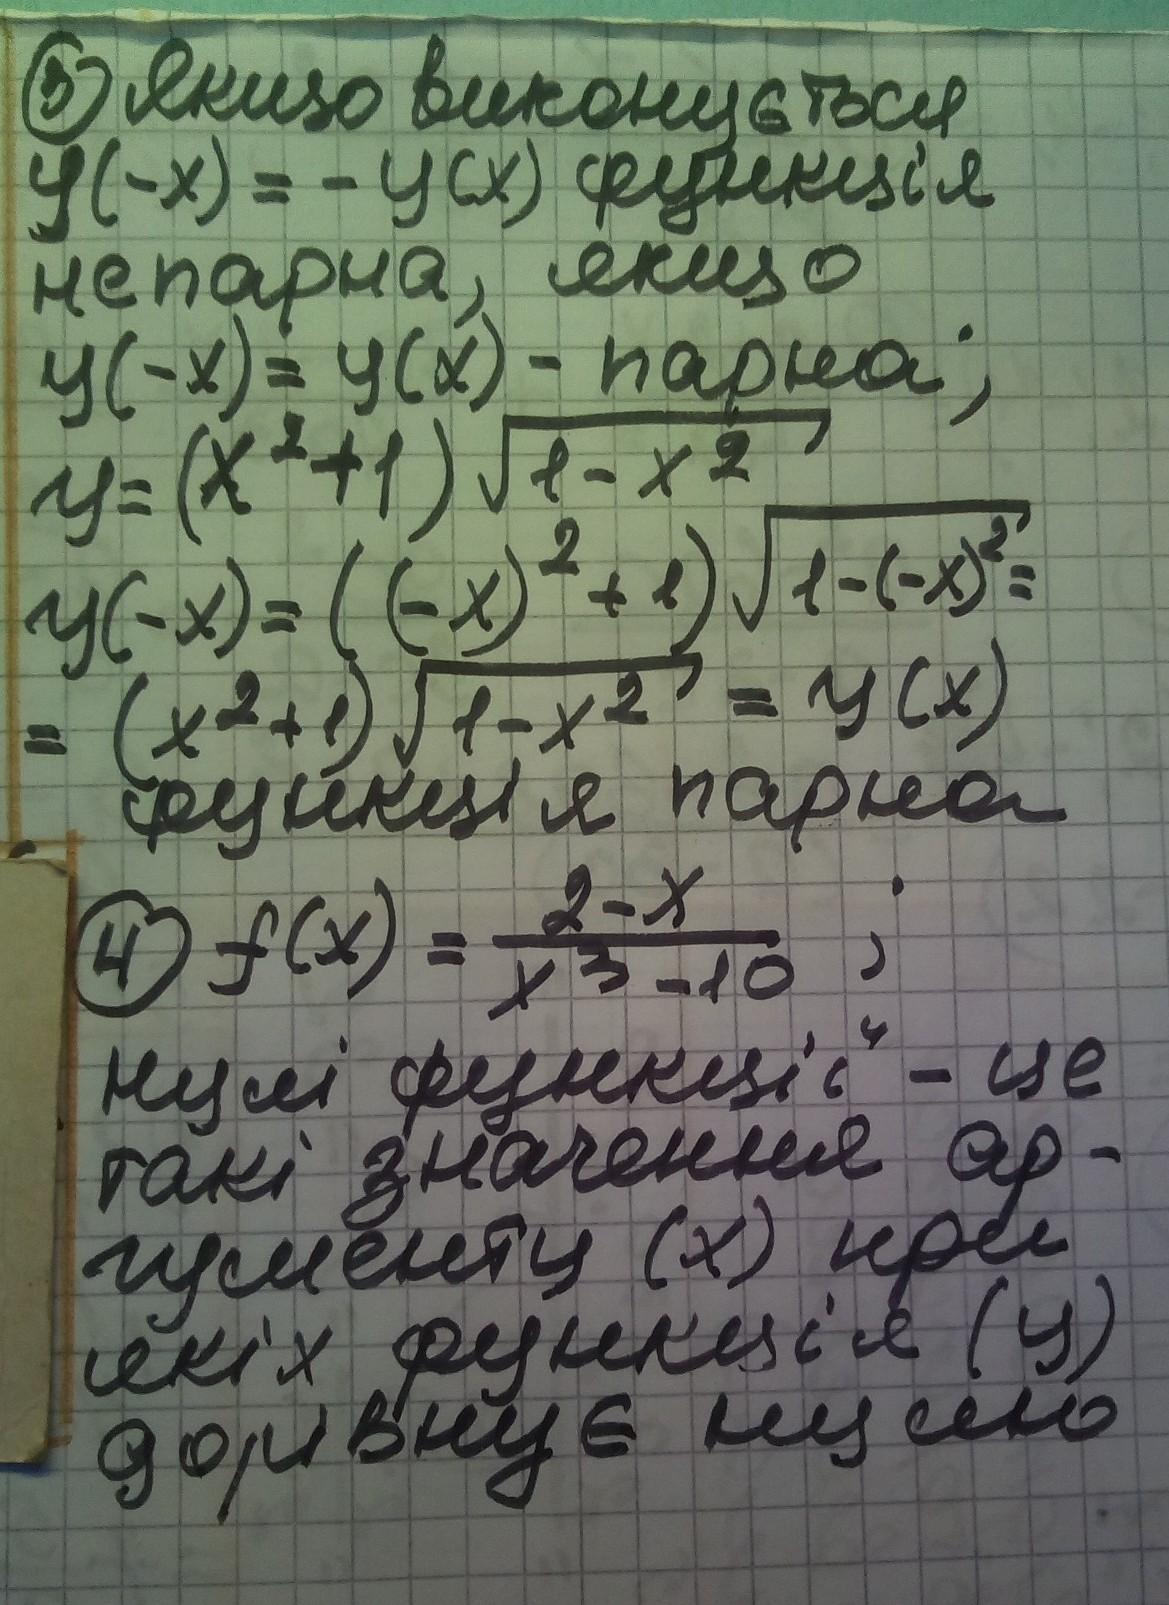 ③ Якщо виконується
y(-x) = - y(x) функція
непарна, якщо
y(-x) = y(x) - парна;
y = (x² + 1) √(1 - x²)
y(-x) = ((-x)² + 1) √(1 - (-x)²) =
= (x² + 1) √(1 - x²) = y(x)
функція парна
④ f(x) = (2 - x) / (x³ - 10) ;
нулі функції - це
такі значення ар-
гументу (x) при
якіх функція (y)
дорівнує нулю